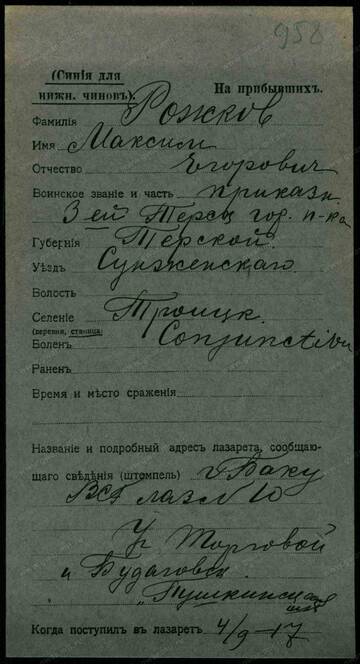 958
(Синія для
нижн. чиновъ). На прибывшихъ.
Фамилія Рожков
Имя Максим
Отчество Егорович
Воинское званіе и часть приказн.
3 ей Терск. гор. п-ка
Губернія Терской.
Уѣздъ Сунженскаго
Волость
Селеніе Троицк.
(деревня, станица)
Боленъ Conjunctiv
Раненъ
Время и мѣсто сраженія
Названіе и подробный адресъ лазарета, сообщаю-
щаго свѣдѣнія (штемпель) г Баку
ВСГ лаз № 10
Уг Торговой
и Будаговск.
"Пушкинская
Когда поступилъ въ лазаретъ 4/9-17